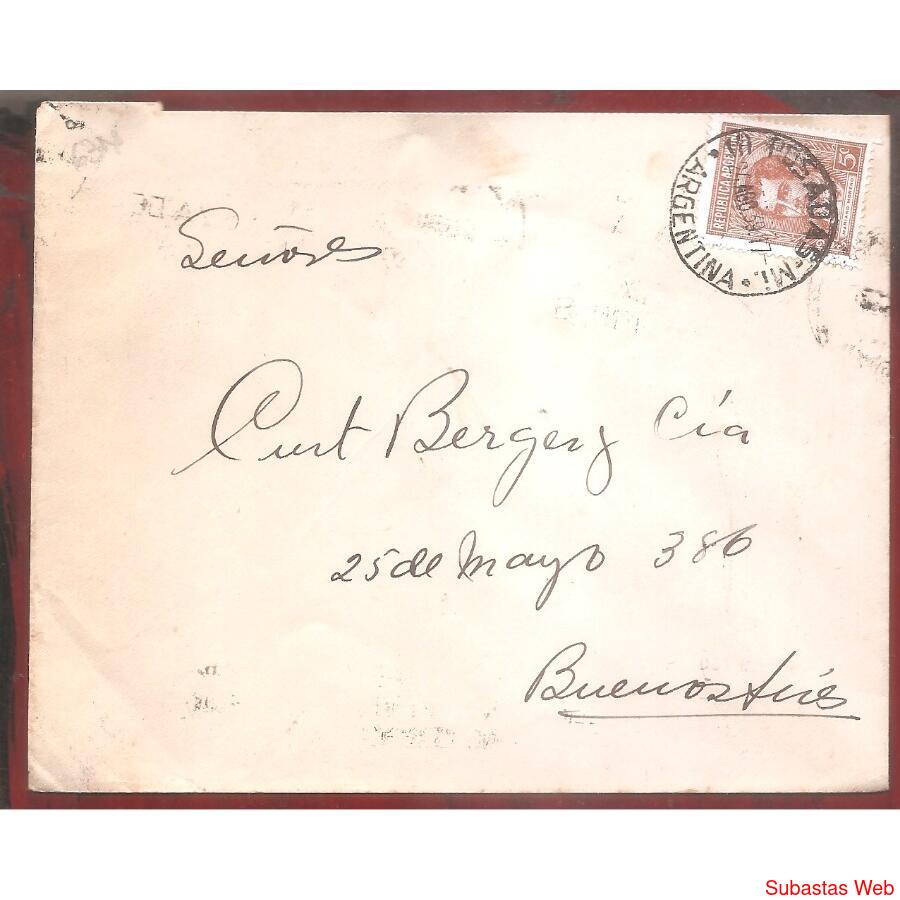 Señores
Curt Berger y Cía
25 de Mayo 386
Buenos Aires
REPUBLICA ARGEN
5
POSADAS·MI.·
ARGENTINA
Subastas Web